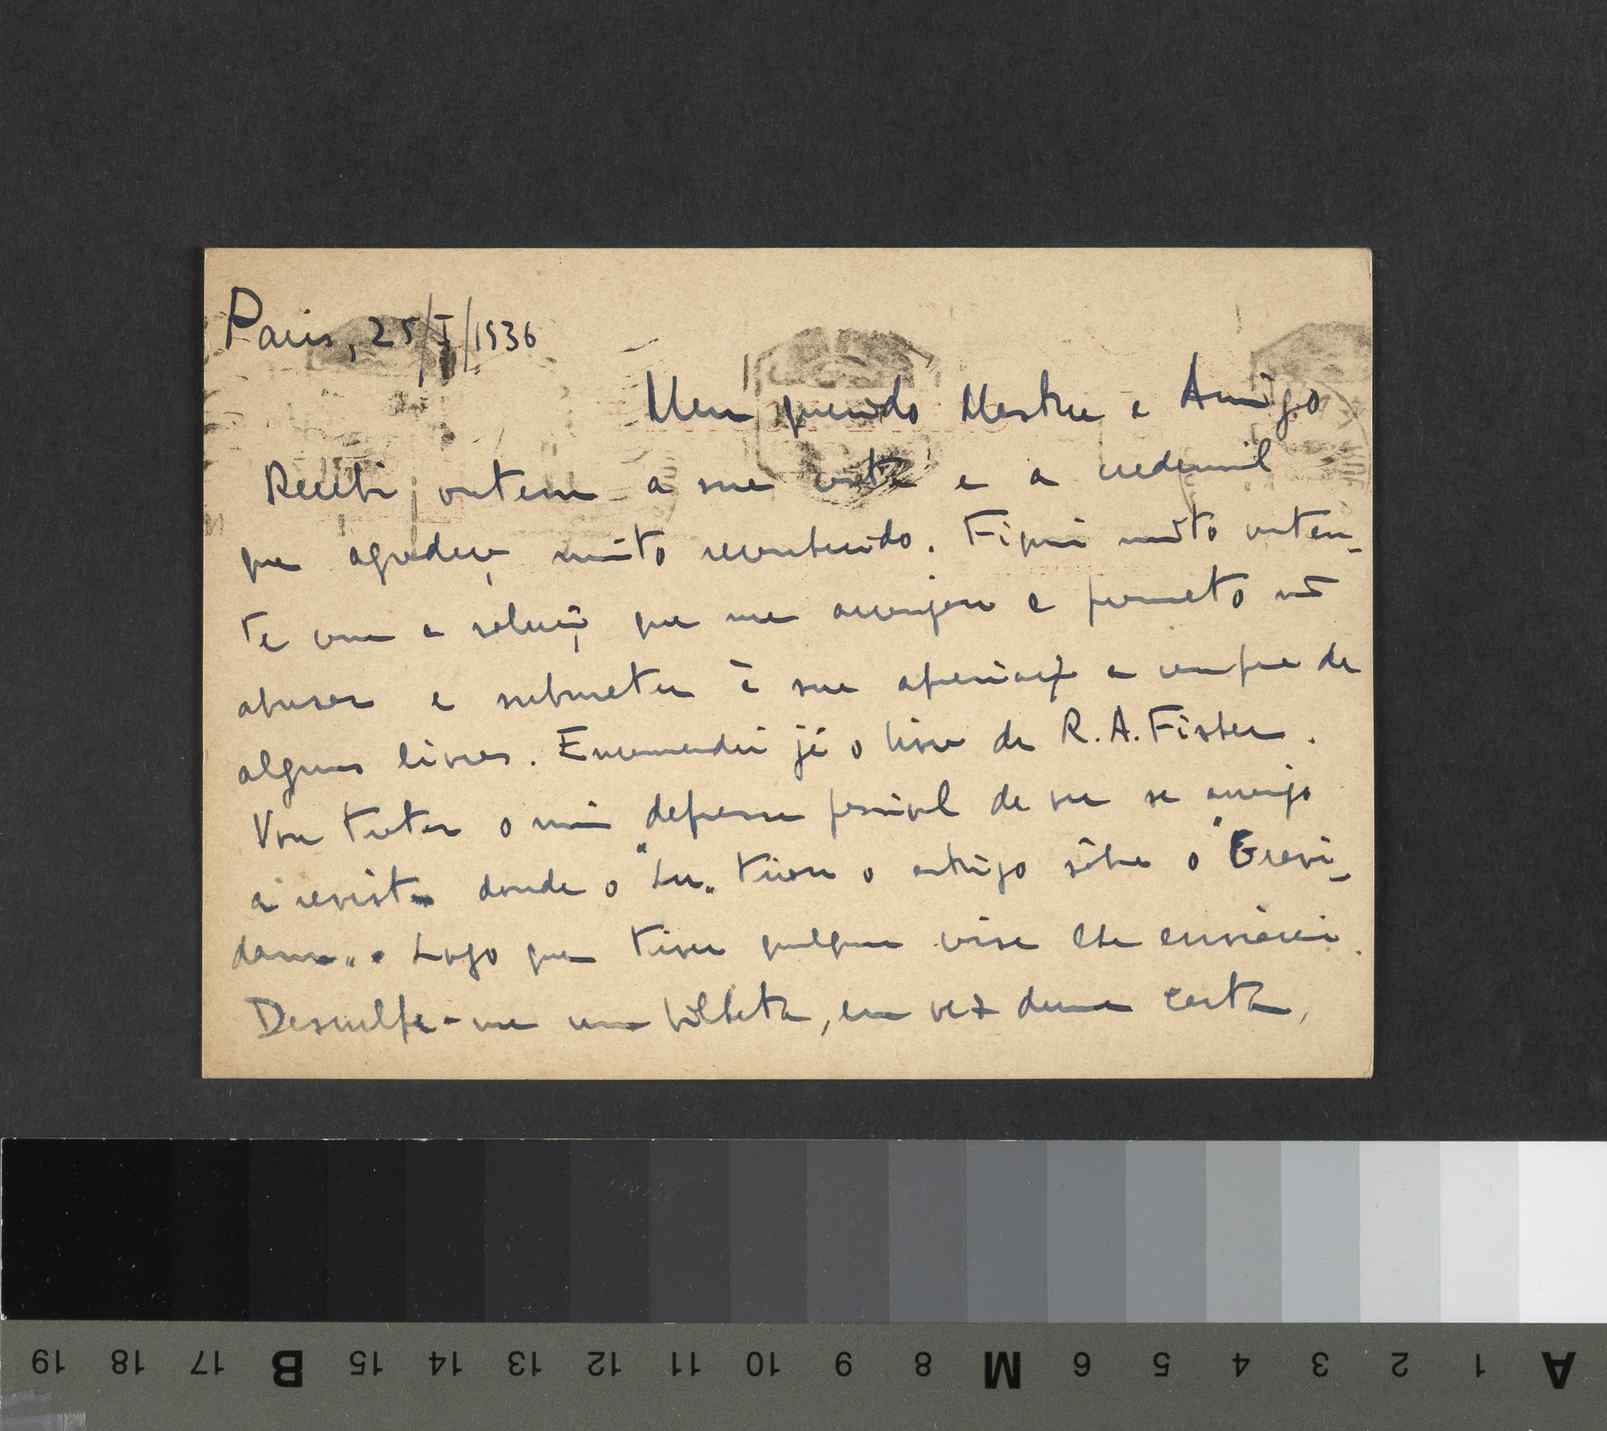 Paris, 25/I/1936
Meu querido Mestre e Amigo
Recebi ontem a sua carta e a credencial
que agradeço muito reconhecido. Fiquei muito conten-
te com a solução que me arranjou e prometo não
abusar e submeter à sua apreciação a compra de
alguns livros. Encomendei já o livro de R. A. Fisher.
Vou tratar o mais depressa possível de ver se arranjo
a revista donde o "Lu" tirou o artigo sôbre o "Gravi-
dans". Logo que tiver qualquer coisa lhe enviarei.
Desculpe-me um bilhete, em vez duma carta,
19 18 17 B 15 14 13 12 11 10 9 8 M 6 5 4 3 2 1 A